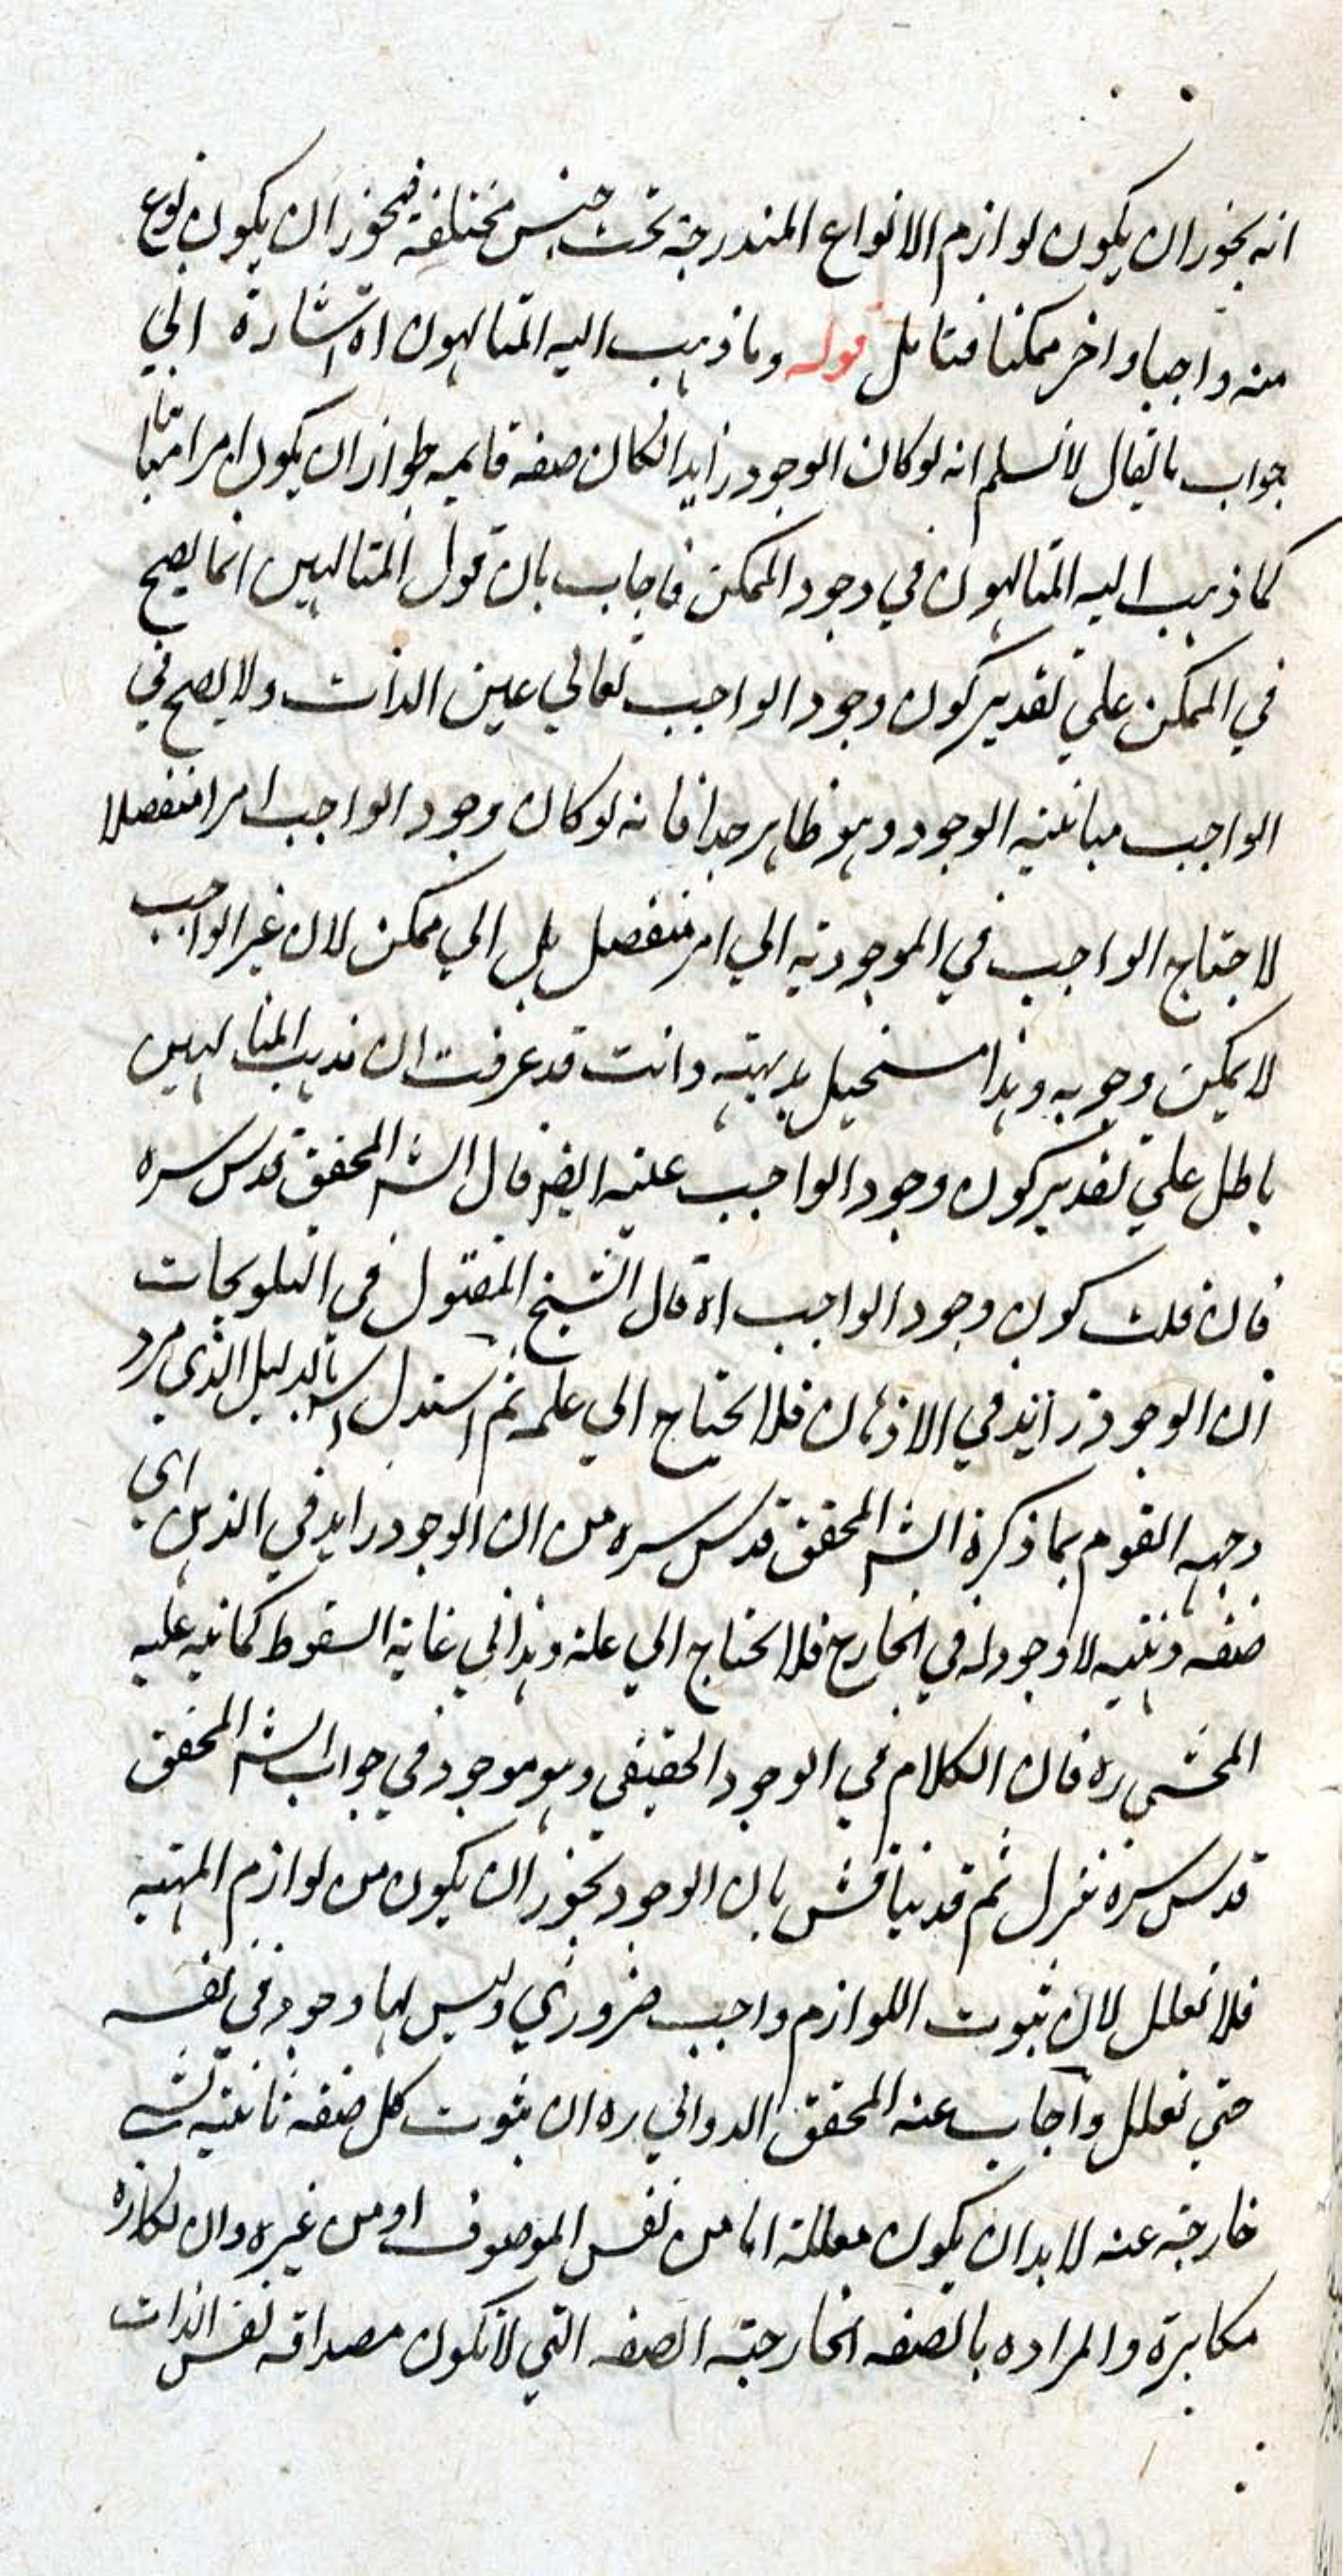 انه يجوز ان يكون لوازم الانواع المندرجة تحت جنس مختلفة فيجوز ان يكون نوع
منه واجبا واخر ممكنا فتامل قوله وما ذهب اليه المتالهون اه اشارة الي
جواب ما يقال لا نسلم انه لو كان الوجود زايدا لكان صفة قايمه لجواز ان يكون امرا مباينا
كما ذهب اليه المتالهون في وجود الممكن فاجاب بان قول المتالهين انما يصح
في الممكن علي تقدير كون وجود الواجب تعالي عين الذات ولا يصح في
الواجب مباينية الوجود وهو ظاهر جدا فانه لو كان وجود الواجب امرا منفصلا
لاحتاج الواجب في الموجودية الي امر منفصل بل الي ممكن لان غير الواجب
لا يمكن وجوبه وهذا مستحيل بديهة وانت قد عرفت ان مذهب المتالهين
باطل علي تقدير كون وجود الواجب عينه ايضا قال الش المحقق قدس سره
فان قلت كون وجود الواجب اه قال الشيخ المقتول في التلويحات
ان الوجود زايد في الاذهان فلا يحتاج الي علة ثم استدل بالدليل الذي مر و
وجهه القوم بما ذكره الش المحقق قدس سره من ان الوجود زايد في الذهن اي
صفة ذهنيه لا وجود له في الخارج فلا يحتاج الي علة وهذا في غاية السقوط كما نبه عليه
المحشي ره فان الكلام في الوجود الحقيقي وهو موجود في جواب الش المحقق
قدس سره تنزل ثم قد يناقش بان الوجود يجوز ان يكون من لوازم المهية
فلا تعلل لان ثبوت اللوازم واجب ضروري وليس لها وجود في نفسه
حتي تعلل واجاب عنه المحقق الدواني ره ان ثبوت كل صفة ثابتة لشي
خارجة عنه لا بد ان يكون معللة اما من نفس الموصوف او من غيره وان انكاره
مكابرة والمراده بالصفه الخارجة الصفه التي لا تكون مصداقه نفس الذات